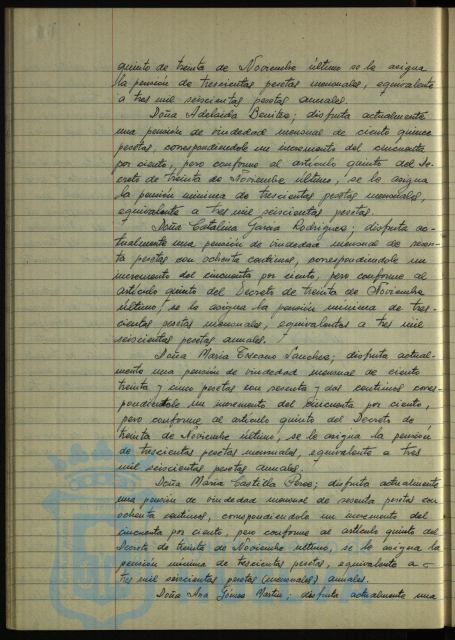 quinto de treinta de Noviembre último se le asigna
la pensión de trescientas pesetas mensuales, equivalente
a tres mil seiscientas pesetas anuales.
Doña Adelaida Benitez; disfruta actualmente
una pensión de viudedad mensual de ciento quince
pesetas, correspondiendole un incremento del cincuenta
por ciento, pero conforme al artículo quinto del De-
creto de treinta de Noviembre último, se le asigna
la pensión minima de trescientas pesetas mensuales,
equivalente a tres mil seiscientas pesetas.
Doña Catalina Garcia Rodriguez; disfruta ac-
tualmente una pensión de viudedad mensual de sesen-
ta pesetas con ochenta centimos, correspondiendole un
incremento del cincuenta por ciento, pero conforme al
artículo quinto del Decreto de treinta de Noviembre
último, se le asigna la pensión minima de tres-
cientas pesetas mensuales, equivalentes a tres mil
seiscientas pesetas anuales.
Doña Maria Toscano Sanchez; disfruta actual-
mente una pensión de viudedad mensual de ciento
treinta y cinco pesetas con sesenta y dos centimos corres-
pondiendole un incremento del cincuenta por ciento,
pero conforme al artículo quinto del Decreto de
treinta de Noviembre último, se le asigna la pensión
de trescientas pesetas mensuales, equivalente a tres
mil seiscientas pesetas anuales.
Doña Maria Castilla Perez; disfruta actualmente
una pensión de viudedad mensual de sesenta pesetas con
ochenta centimos, correspondiendole un incremento del
cincuenta por ciento, pero conforme al artículo quinto del
Decreto de treinta de Noviembre último, se le asigna la
pensión minima de trescientas pesetas, equivalente a
tres mil seiscientas pesetas (mensuales) anuales.
Doña Ana Gómez Martin; disfruta actualmente una